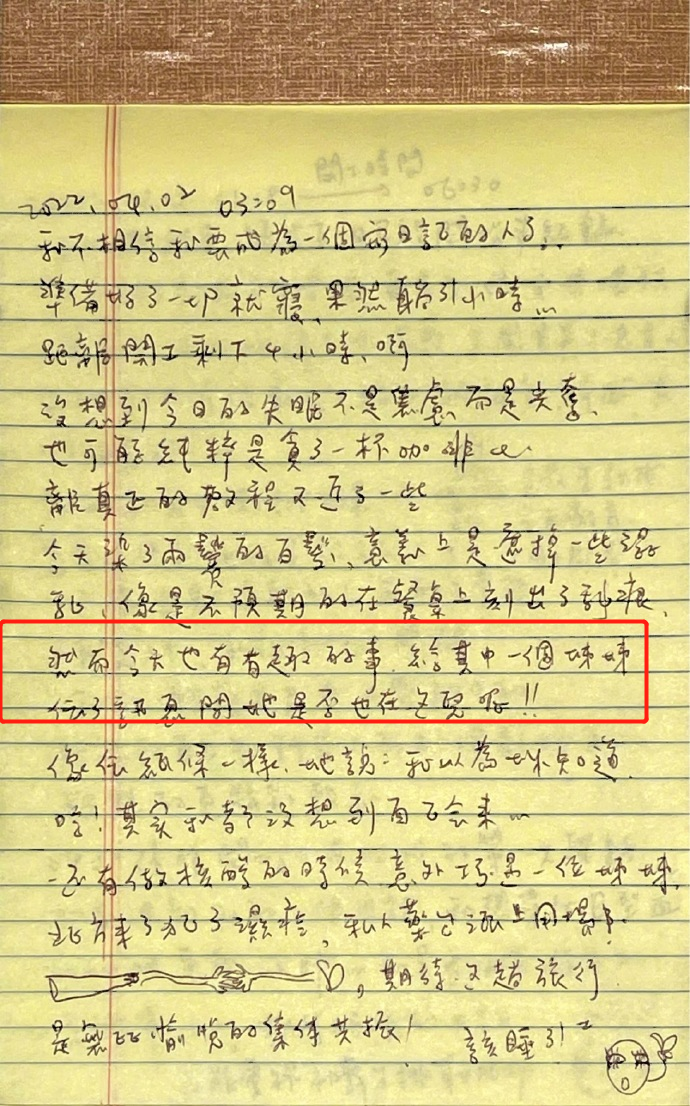 2022.04.02 03:09
我不相信我要成為一個寫日記的人了..
準備好了一切就寢、果然輾了小時...
距離開工剩下4小時、啊
沒想到今日的失眠不是焦慮、而是亢奮、
也可能純粹是貪了一杯咖啡
離真正的啟程又近了一些
今天染了兩鬢的白髮、意義上是遮掉一些混
亂、像是不預期的在餐桌上刻出了刮痕、
然而今天也有有趣的事、給其中一個姊姊
傳了訊息問她是否也在這兒呀!!
像傳紙條一樣、她說:我以為妳知道
哈!其實我都沒想到自己會來...
還有做核酸的時候、意外巧是一位姊姊、
私人藥包派上用場了.
,期待这趟旅行
是愉悅的集体共振!
該睡了!